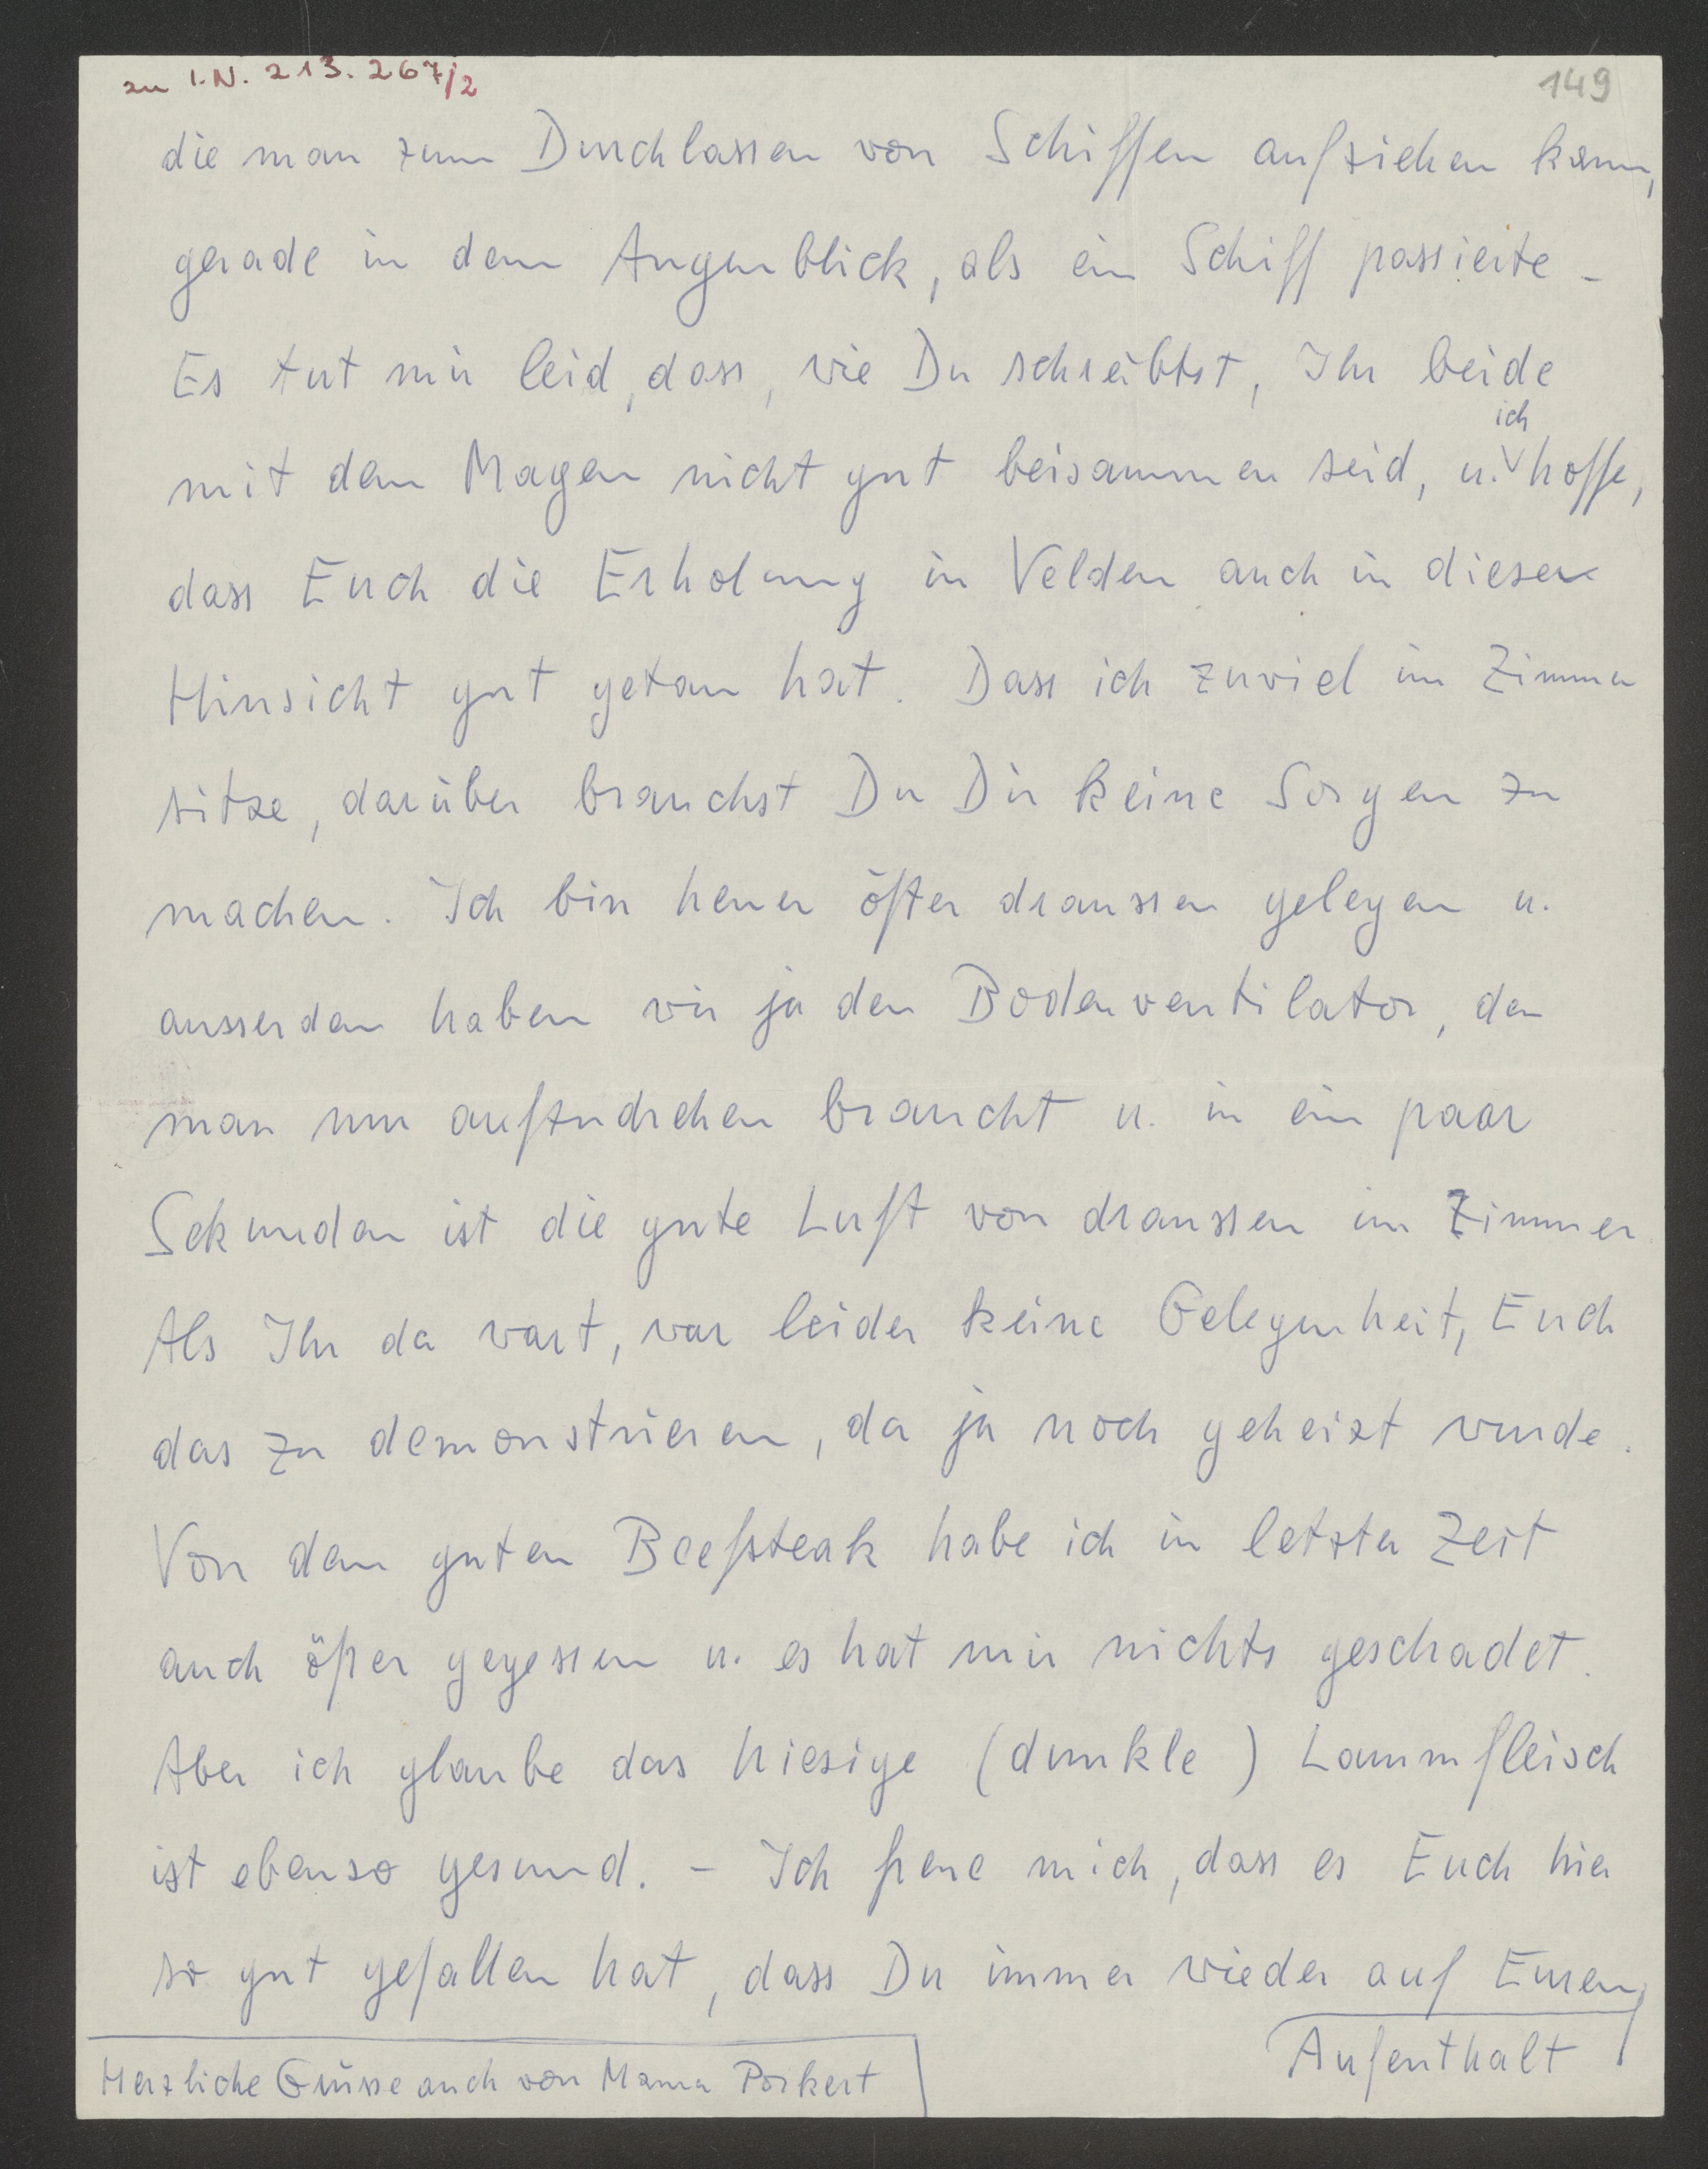 zu I.N. 213.267/2
149
die man zum Durchlassen von Schiffen aufziehen kann,
gerade in dem Augenblick, als ein Schiff passierte -
Es tut mir leid, dass, wie Du schreibtst, Ihr beide
ich
mit dem Magen nicht gut beisammen seid, u. hoffe,
dass Euch die Erholung in Velden auch in dieser
Hinsicht gut getan hat. Dass ich zuviel im Zimmer
sitze, darüber brauchst Du Dir keine Sorgen zu
machen. Ich bin heuer öfter draussen gelegen u.
ausserdem haben wir ja den Bodenventilator, den
man nur aufzudrehen braucht u. in ein paar
Sekunden ist die gute Luft von draussen im Zimmer.
Als Ihr da wart, war leider keine Gelegenheit, Euch
das zu demonstrieren, da ja noch geheizt wurde.
Von dem guten Beefsteak habe ich in letzter Zeit
auch öfter gegessen u. es hat mir nichts geschadet.
Aber ich glaube das hiesige (dunkle) Lammfleisch
ist ebenso gesund. - Ich freue mich, dass es Euch hier
so gut gefallen hat, dass Du immer wieder auf Euren
Aufenthalt
Herzliche Grüsse auch von Mama Porkert